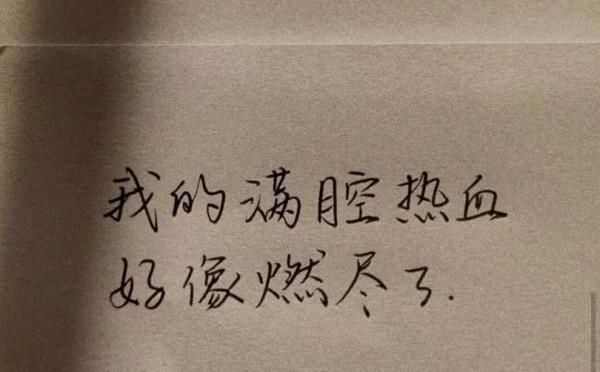 我的满腔热血
好像燃尽了.